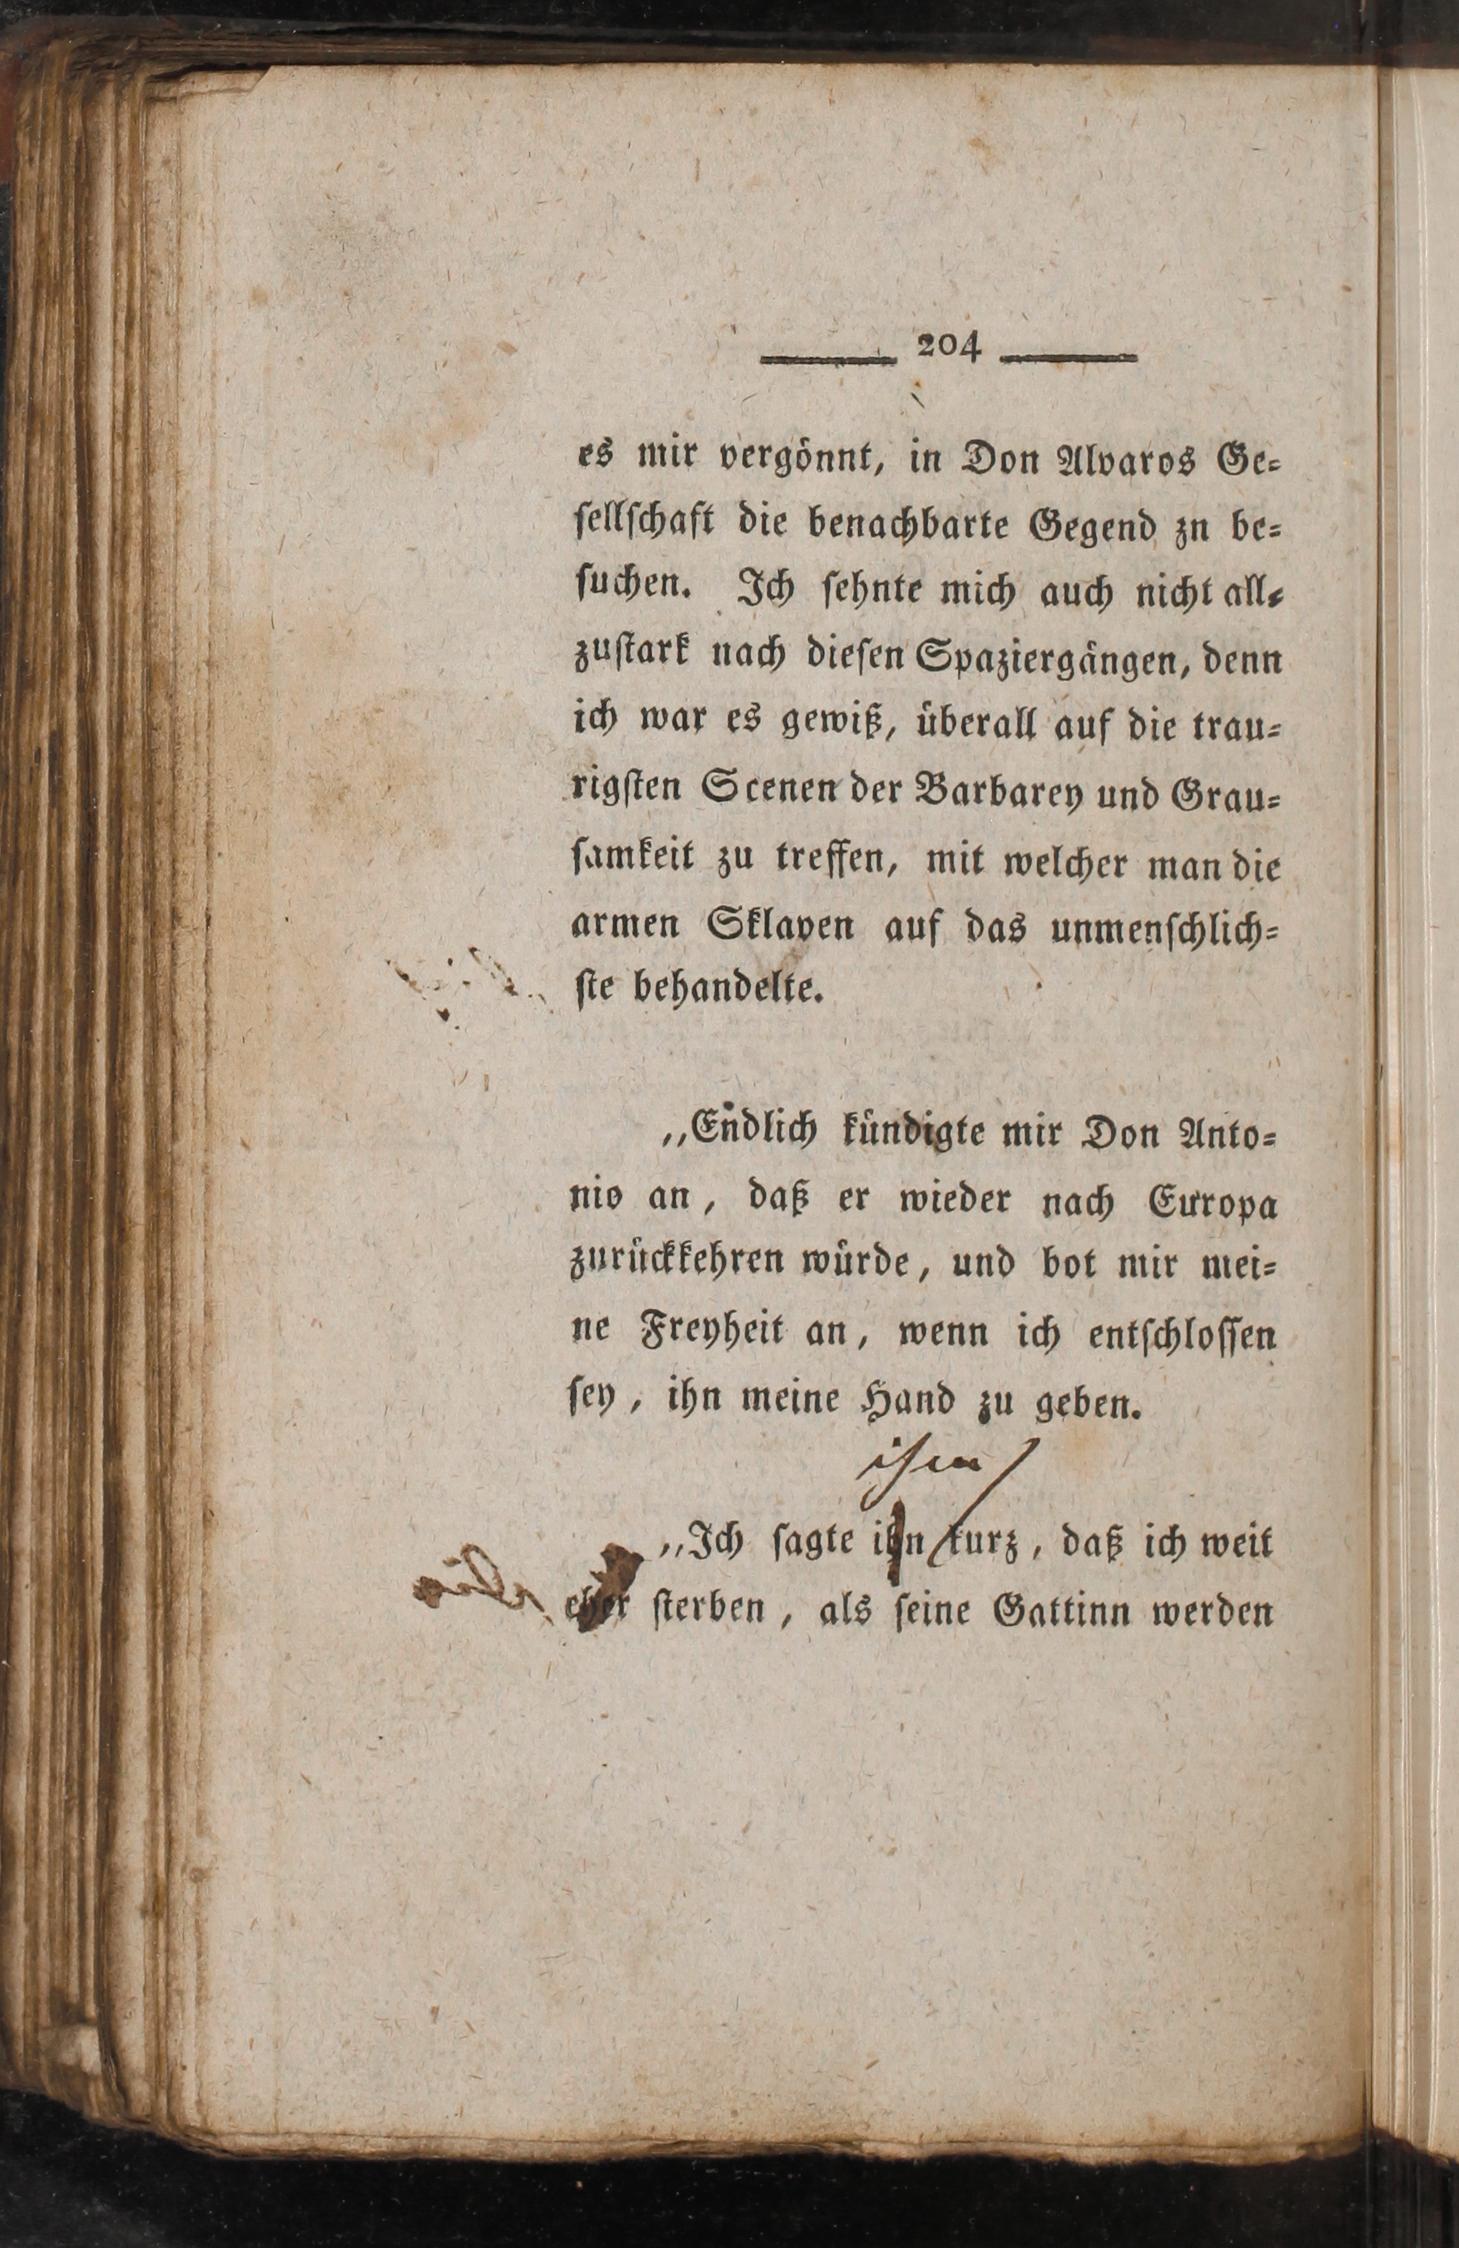 204
es mir vergönnt, in Don Alvaros Ge=
ſellſchaft die benachbarte Gegend zn be=
ſuchen. Ich ſehnte mich auch nicht all=
zuſtark nach dieſen Spaziergängen, denn
ich war es gewiß, überall auf die trau=
rigſten Scenen der Barbarey und Grau=
ſamkeit zu treffen, mit welcher man die
armen Sklaven auf das unmenſchlich=
ſte behandelte.
„Endlich kündigte mir Don Anto=
nio an, daß er wieder nach Europa
zurückkehren würde, und bot mir mei=
ne Freyheit an, wenn ich entſchloſſen
ſey, ihn meine Hand zu geben.
ihm
„Ich ſagte ihn kurz, daß ich weit
eher ſterben, als ſeine Gattinn werden